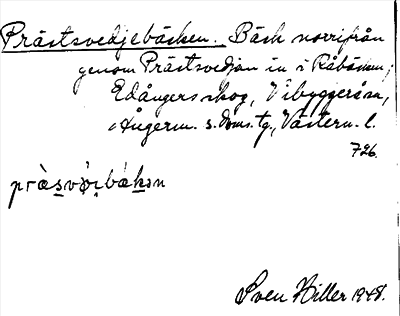 Prästsvedjebäcken. Bäck norrifrån
genom Prästsvedjan in i Råbäcken,
Edångers skog, Vibyggerå sn,
Ångerm. s. doms. tg., Västern. l.
726.
Sven Hiller 1948.